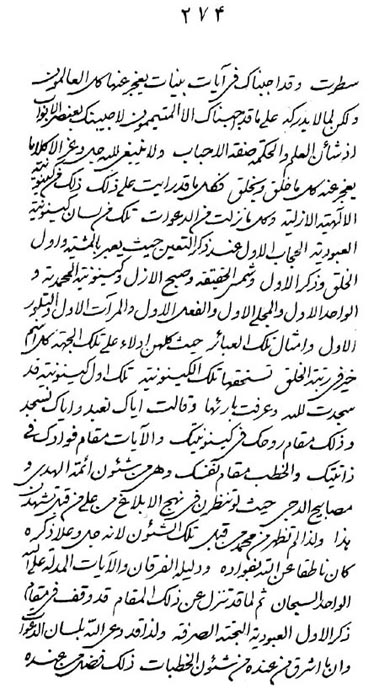 ۲۷۴
سطرت وقد اجبناك فی آیات بینات یعجز عنها كل العالمون
ولكن لما لا یدركه علی ما قد اجبناك الا المتیممون لاجیبنك بعنصر الابواب
اذ شأن العلم والحكمة صفة الاحباب ولا ینبغی لله جل وعز الا كلاما
یعجز عنه كل ما خلق ویخلق فكل ما قد رایت علی ذلك ذلك فی كینونیة
الالهیة الازلیة وكل ما نزلت فی الدعوات تلك فی لسان كینونیة
العبودیة الحجاب الاول عند ذكر التعین حیث یعبر بالمشیة واول
الخلق وذكر الاول وشمس الحقیقة وصبح الازل وكینونیة المحمدیة و
الواحد الاول والمجلی الاول والفعل الاول والمرآت الاول والبلور
الاول وامثال تلك العبائر حیث كلهن ادلاء علی تلك الجهة كل اسم
خیر فی رتبة الخلق تستحقها تلك الكینونیة تلك اول كینونیة قد
سجدت لله وعرفت بارئها وقالت ایاك نعبد وایاك نسجد
وذلك مقام روحك فی كینونیتك والآیات مقام فؤادك فی
ذاتیتك والخطب مقام نفسك وهی من شئون ائمة الهدی و
مصابیح الدجی حیث لو تنظرن فی نهج البلاغة من علی من قبل تشهدن
بذا ولذا لم تظهر من محمد من قبل تلك الشئون لانه جل وعلا ذكره
كان ناطقا عن الله بفؤاده ودلیله الفرقان والآیات المدلة علی الله
الواحد السبحان ثم لما قد تنزل عن ذلك المقام قد وقف فی مقام
ذكر الاول العبودیة البحتة الصرفة ولذا قد دعی الله بلسان الدعوات
وان ما اشرق من عنده من شئون الخطبات ذلك فضل من عنده